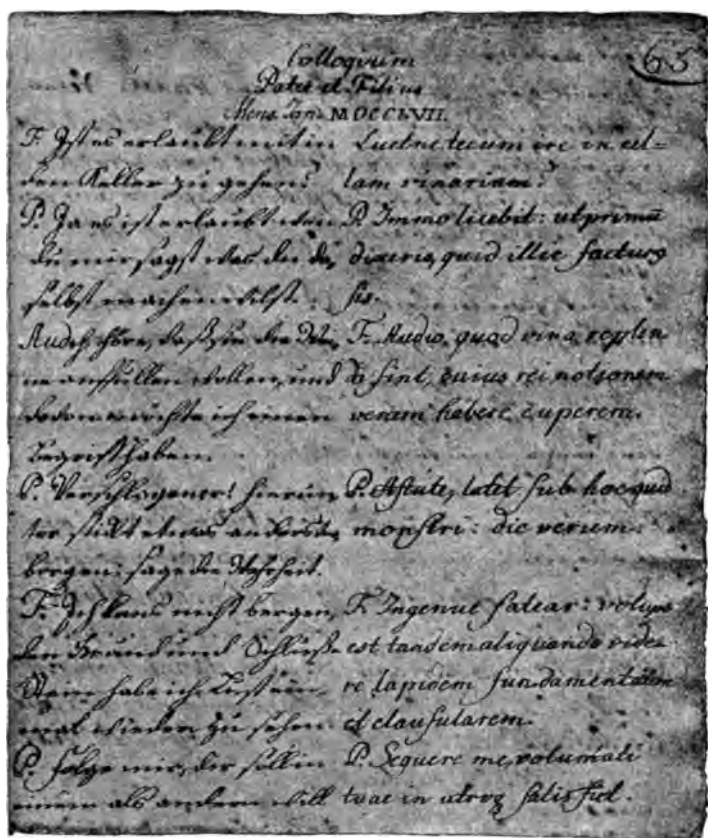 65
Colloquium
Pater et Filius
Mens. Jan. MDCCLVII.
F. Ist es erlaubt mit in
den Keller zu gehen?
P. Ja es ist erlaubt wen
du mir sagst was du da„
selbst machen wilst.
höre, daß sie die Wei„
ne auffüllen wollen, und
davon möchte ich einen
Begriff haben.
P. Verschlagener! hierun„
ter stickt etwas anders
borgen: sage die Wahrheit.
F. Ich kans nicht bergen,
den Grund und Schluß-
Stein habe ich Lust ein„
mal wieder zu sehen
P. folge mir, dir soll in
einem als andern Will
Licetne tecum ire in cel=
lam vinariam?
P. Immo licebit: ut primū
dixeris, quid illic facturus
sis.
F. Audio, quod vina replen
da sint, cuius rei notionem
veram habere cuperem.
P. Astute, latet sub hoc quid
monstri: dic verum.
F. Ingenue fatear: volupe
est tandem aliquando vide
re lapidem fundamentalem
et clausularem.
P. Sequere me, voluntati
tuae in utroq satis fiet.